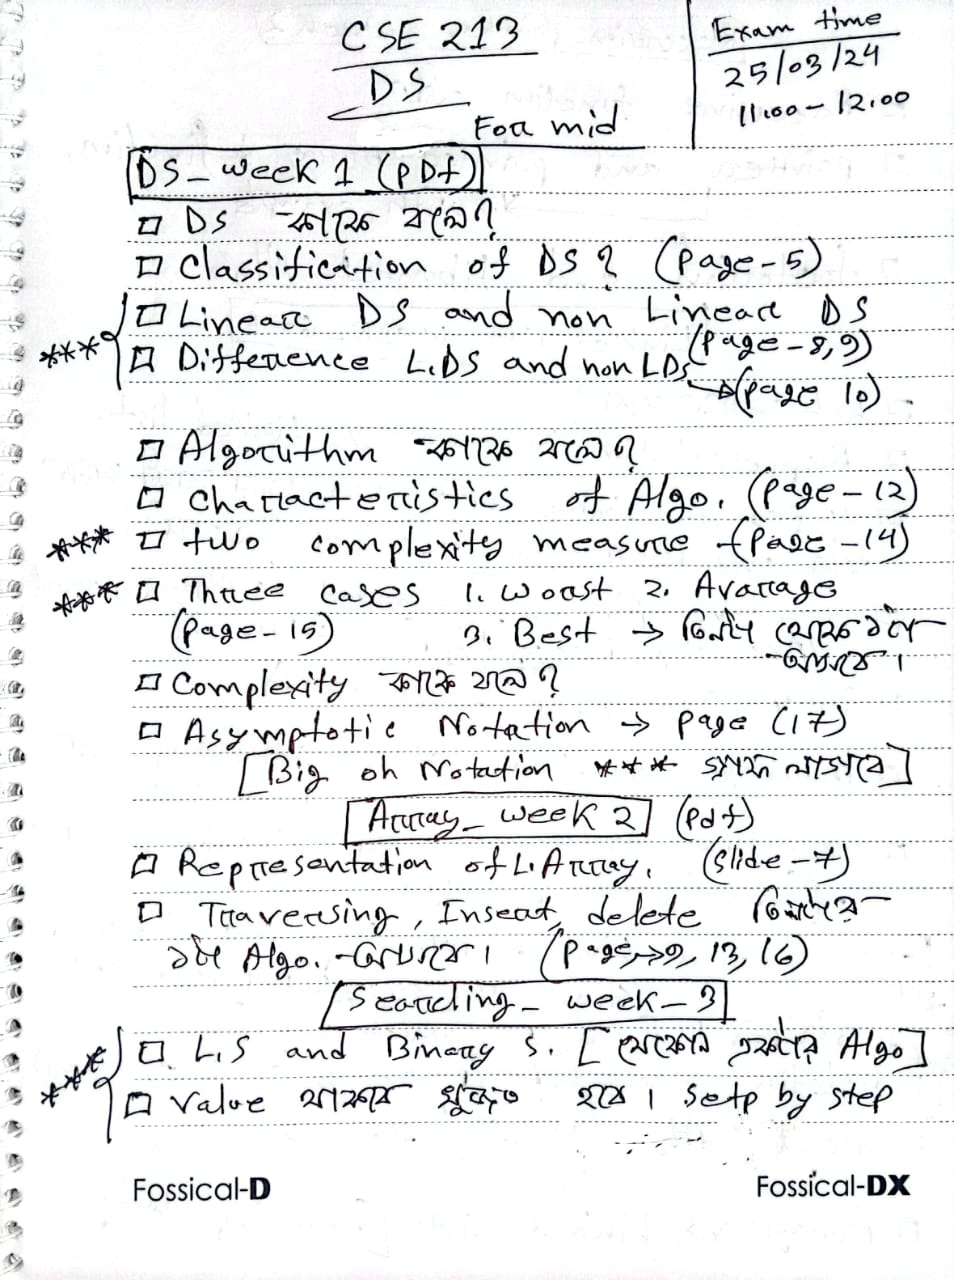 CSE 213
DS
For mid
Exam time
25/03/24
11.00 - 12.00
DS - week 1 (pDf)
DS কাকে বলে?
Classification of DS? (page-5)
Linear DS and non Linear DS
(page-8,9)
*** Difference L.DS and non LDs
→ (page 10)
Algorithm কাকে বলে?
Characteristics of Algo. (page-12)
*** two complexity measure → (page-14)
*** Three cases 1. Worst 2. Avarage
(page-15) 3. Best → তিনটা থেকে ১টা
আসবে।
Complexity কাকে বলে?
Asymptotic Notation → page (17)
[Big oh Notation *** অংক আসবে]
Array - week 2 (pdf)
Representation of L. Array. (slide-7)
Traversing, Insert, delete তিনটার
১টা Algo. আসবে। (page→9, 13, 16)
Searching - week-3
*** L.S and Binary S. [যেকোন একটার Algo]
Value থাকবে খুঁজতে হবে। Setp by step
Fossical-D
Fossical-DX